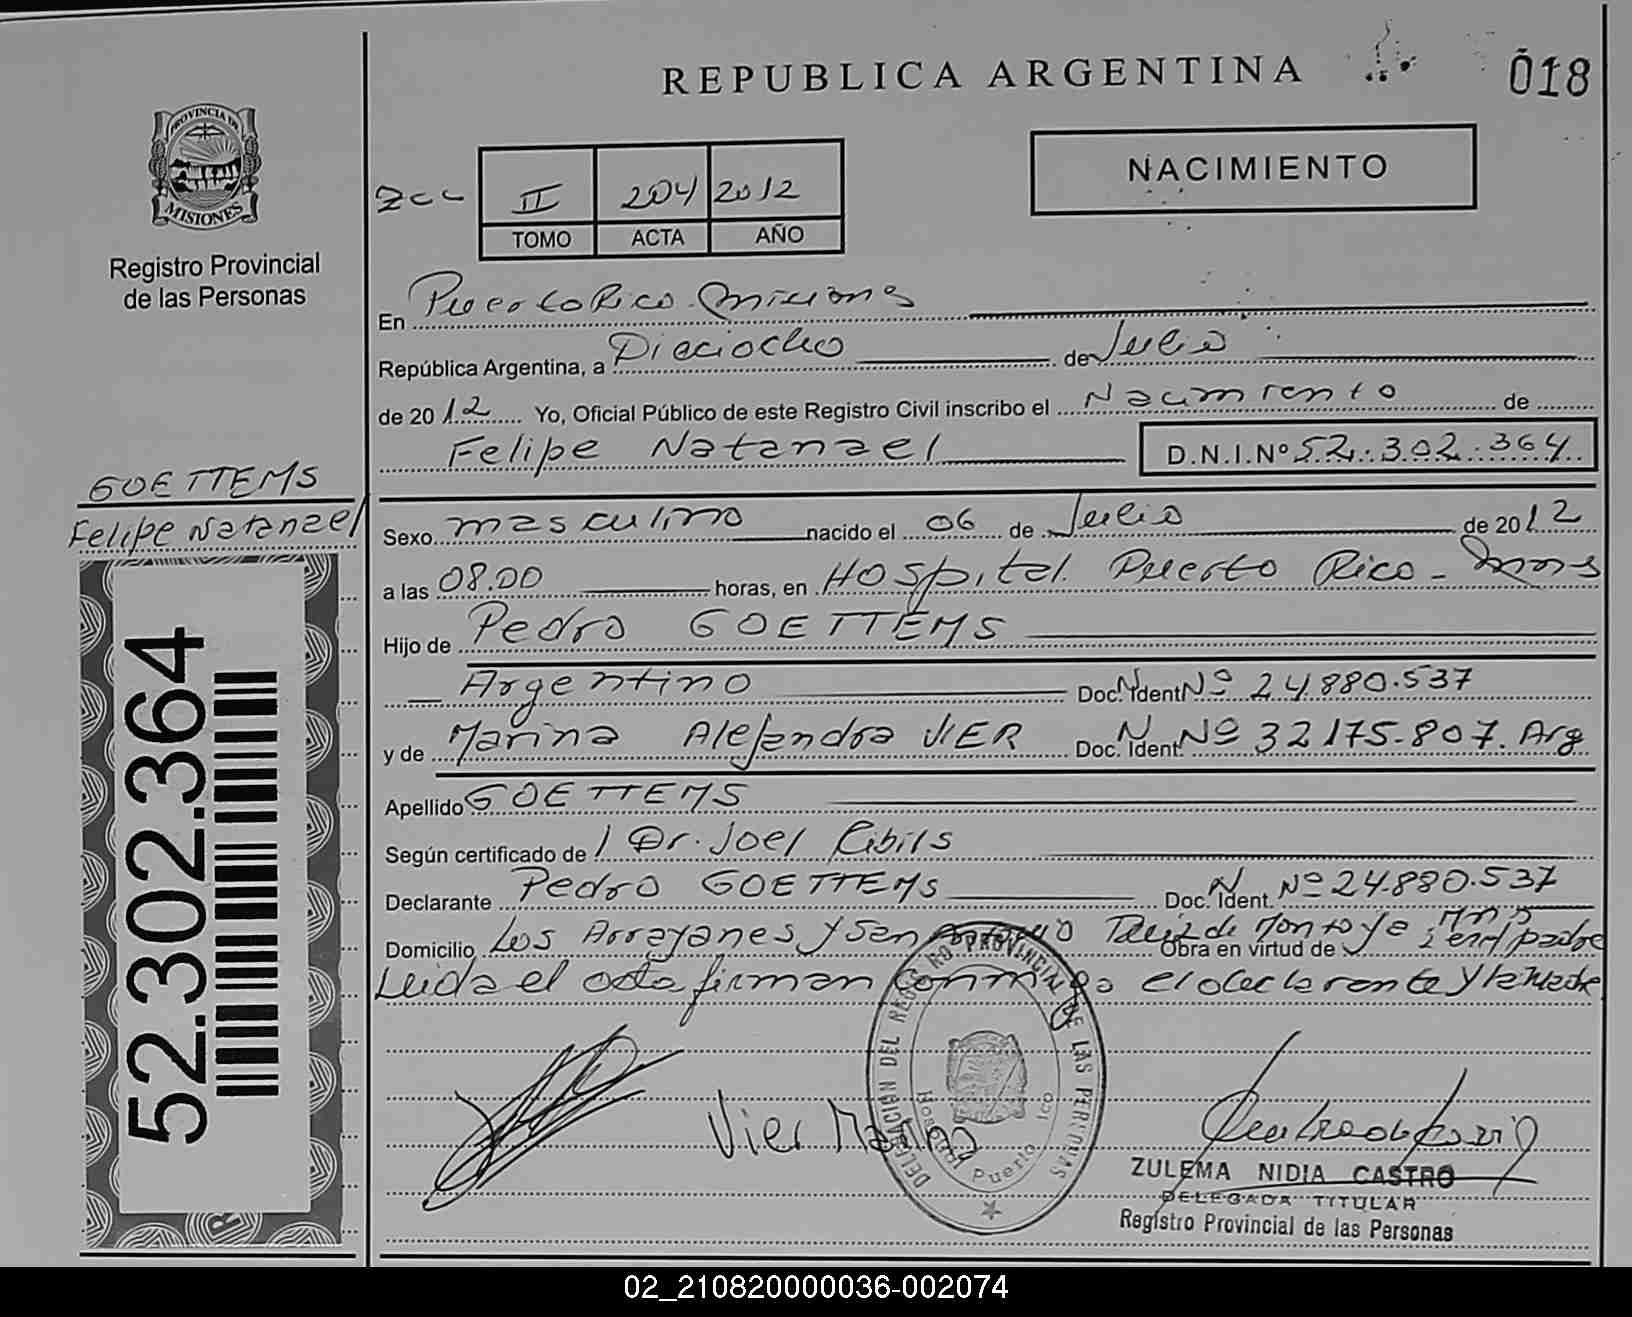 REPUBLICA ARGENTINA
018
PROVINCIA DE
MISIONES
Registro Provincial
de las Personas
NACIMIENTO
II 204 2012
TOMO ACTA AÑO
En Puerto Rico - Misiones
República Argentina, a Dieciocho de Julio
de 2012 Yo, Oficial Público de este Registro Civil inscribo el Nacimiento de
Felipe Natanael D.N.I.Nº 52.302.364
GOETTEMS
Felipe Natanael
52.302.364
Sexo masculino nacido el 06 de Julio de 2012
a las 08.00 horas, en Hospital Puerto Rico - Mnes
Hijo de Pedro GOETTEMS
Argentino Doc. N Ident Nº 24.880.537
y de Marina Alejandra VIER Doc. N Ident. Nº 32175.807. Arg
Apellido GOETTEMS
Según certificado de Dr. Joel Ribils
Declarante Pedro GOETTEMS Doc. N Ident. Nº 24.880.537
Domicilio Los Arrayanes y San Antonio Ruiz de Montoya Mns Obra en virtud de ser padre
Leida el acta firman conmigo el declarante y la Madre
Vier Marina
DELEGACION DEL REGISTRO PROVINCIAL DE LAS PERSONAS
Hospital Puerto Rico
ZULEMA NIDIA CASTRO
DELEGADA TITULAR
Registro Provincial de las Personas
02_210820000036-002074